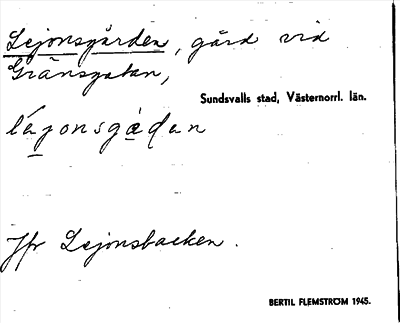 Lejonsgården, gård vid
Gränsgatan,
Sundsvalls stad, Västernorrl. län.
Jfr Lejonsbacken.
BERTIL FLEMSTRÖM 1945.